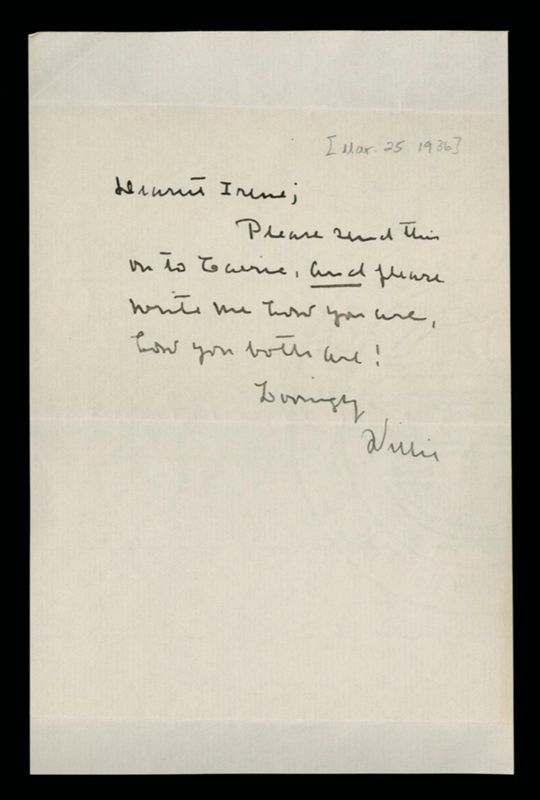 [Mar. 25 1936]
Dearest Irene;
Please send this
on to Carrie, and please
write me how you are,
how you both are!
Lovingly
Willie